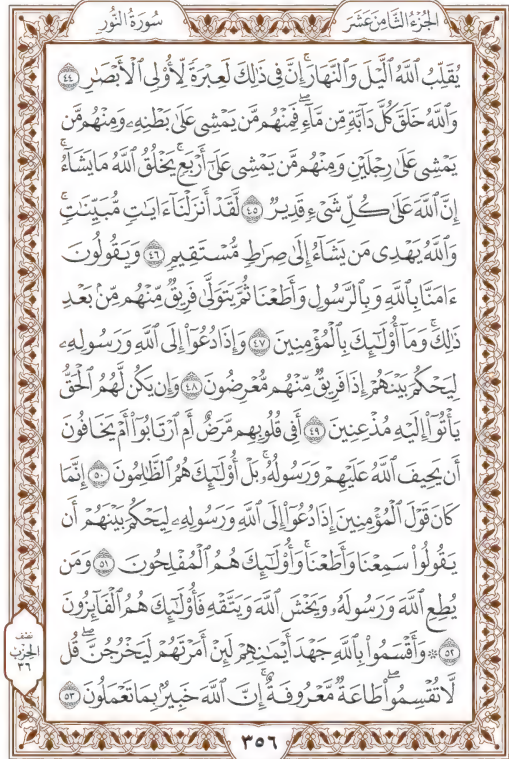 الجزء الثامن عشر
سورة النور
يُقَلِّبُ ٱللَّهُ ٱلَّيۡلَ وَٱلنَّهَارَۚ إِنَّ فِي ذَٰلِكَ لَعِبۡرَةٗ لِّأُوْلِي ٱلۡأَبۡصَٰرِ ٤٤
وَٱللَّهُ خَلَقَ كُلَّ دَآبَّةٖ مِّن مَّآءٖۖ فَمِنۡهُم مَّن يَمۡشِي عَلَىٰ بَطۡنِهِۦ وَمِنۡهُم مَّن
يَمۡشِي عَلَىٰ رِجۡلَيۡنِ وَمِنۡهُم مَّن يَمۡشِي عَلَىٰٓ أَرۡبَعٖۚ يَخۡلُقُ ٱللَّهُ مَا يَشَآءُۚ
إِنَّ ٱللَّهَ عَلَىٰ كُلِّ شَيۡءٖ قَدِيرٞ ٤٥ لَّقَدۡ أَنزَلۡنَآ ءَايَٰتٖ مُّبَيِّنَٰتٖۚ
وَٱللَّهُ يَهۡدِي مَن يَشَآءُ إِلَىٰ صِرَٰطٖ مُّسۡتَقِيمٖ ٤٦ وَيَقُولُونَ
ءَامَنَّا بِٱللَّهِ وَبِٱلرَّسُولِ وَأَطَعۡنَا ثُمَّ يَتَوَلَّىٰ فَرِيقٞ مِّنۡهُم مِّنۢ بَعۡدِ
ذَٰلِكَۚ وَمَآ أُوْلَٰٓئِكَ بِٱلۡمُؤۡمِنِينَ ٤٧ وَإِذَا دُعُوٓاْ إِلَى ٱللَّهِ وَرَسُولِهِۦ
لِيَحۡكُمَ بَيۡنَهُمۡ إِذَا فَرِيقٞ مِّنۡهُم مُّعۡرِضُونَ ٤٨ وَإِن يَكُن لَّهُمُ ٱلۡحَقُّ
يَأۡتُوٓاْ إِلَيۡهِ مُذۡعِنِينَ ٤٩ أَفِي قُلُوبِهِم مَّرَضٌ أَمِ ٱرۡتَابُوٓاْ أَمۡ يَخَافُونَ
أَن يَحِيفَ ٱللَّهُ عَلَيۡهِمۡ وَرَسُولُهُۥۚ بَلۡ أُوْلَٰٓئِكَ هُمُ ٱلظَّٰلِمُونَ ٥٠ إِنَّمَا
كَانَ قَوۡلَ ٱلۡمُؤۡمِنِينَ إِذَا دُعُوٓاْ إِلَى ٱللَّهِ وَرَسُولِهِۦ لِيَحۡكُمَ بَيۡنَهُمۡ أَن
يَقُولُواْ سَمِعۡنَا وَأَطَعۡنَاۚ وَأُوْلَٰٓئِكَ هُمُ ٱلۡمُفۡلِحُونَ ٥١ وَمَن
يُطِعِ ٱللَّهَ وَرَسُولَهُۥ وَيَخۡشَ ٱللَّهَ وَيَتَّقۡهِ فَأُوْلَٰٓئِكَ هُمُ ٱلۡفَآئِزُونَ
٥٢ ۞ وَأَقۡسَمُواْ بِٱللَّهِ جَهۡدَ أَيۡمَٰنِهِمۡ لَئِنۡ أَمَرۡتَهُمۡ لَيَخۡرُجُنَّۖ قُل
لَّا تُقۡسِمُواْۖ طَاعَةٞ مَّعۡرُوفَةٌۚ إِنَّ ٱللَّهَ خَبِيرُۢ بِمَا تَعۡمَلُونَ ٥٣
نصف
الحزب
٣٦
٣٥٦